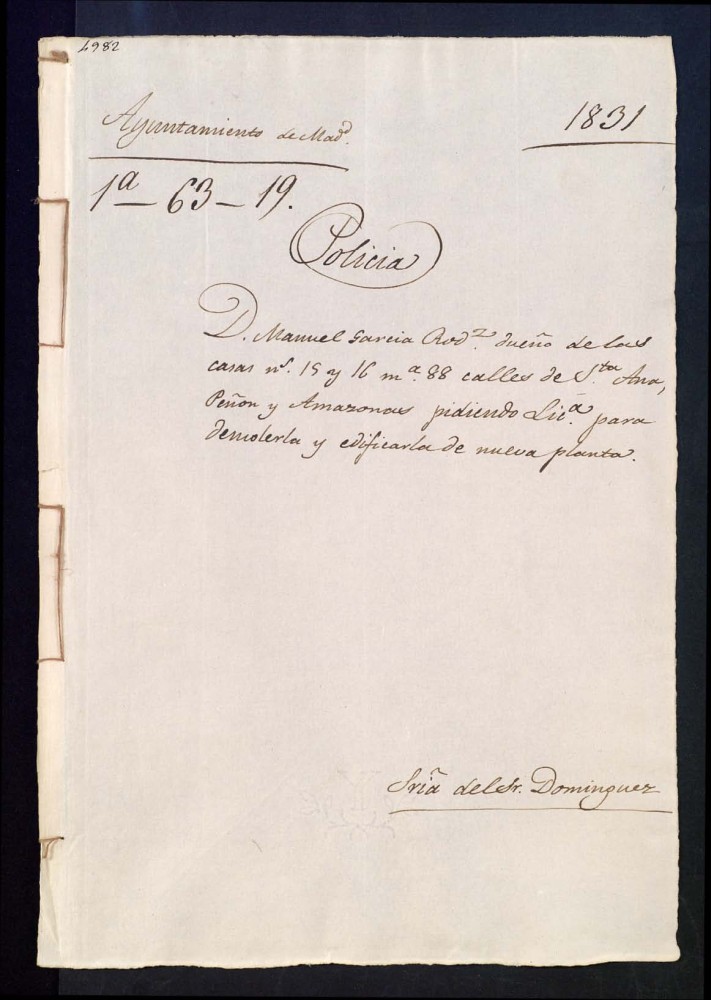 4982
Ayuntamiento de Madd.
1831
1a - 63 - 19.
Policia
D. Manuel Garcia Rodz. dueño de las
casas ns. 15 y 16 ma. 88 calles de Sta. Ana,
Peñon y Amazonas pidiendo Lica. para
demolerla y edificarla de nueva planta.
Sria del Sr. Dominguez